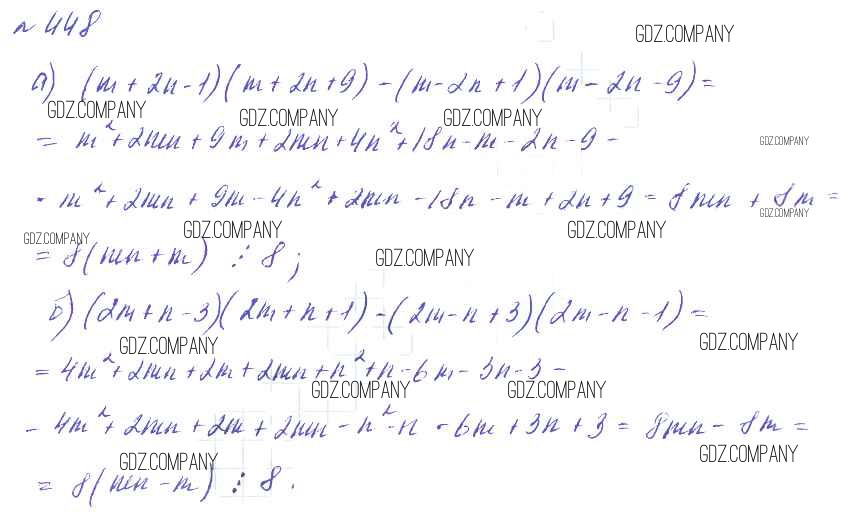 № 448
GDZ.COMPANY
а) (m + 2n - 1)(m + 2n + 9) - (m - 2n + 1)(m - 2n - 9) =
GDZ.COMPANY GDZ.COMPANY GDZ.COMPANY
= m² + 2mn + 9m + 2mn + 4n² + 18n - m - 2n - 9 -
GDZ.COMPANY
- m² + 2mn + 9m - 4n² + 2mn - 18n - m + 2n + 9 = 8mn + 8m =
GDZ.COMPANY
GDZ.COMPANY GDZ.COMPANY GDZ.COMPANY
= 8(mn + m) ⋮ 8;
GDZ.COMPANY
б) (2m + n - 3)(2m + n + 1) - (2m - n + 3)(2m - n - 1) =
GDZ.COMPANY GDZ.COMPANY
= 4m² + 2mn + 2m + 2mn + n² + n - 6m - 3n - 3 -
GDZ.COMPANY GDZ.COMPANY
- 4m² + 2mn + 2m + 2mn - n² - n - 6m + 3n + 3 = 8mn - 8m =
GDZ.COMPANY GDZ.COMPANY
= 8(mn - m) ⋮ 8.